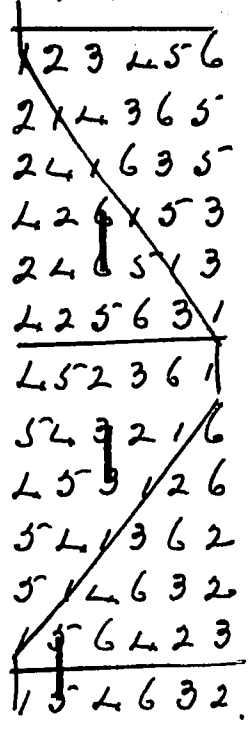 1 2 3 4 5 6
2 1 4 3 6 5
2 4 1 6 3 5
4 2 6 1 5 3
2 4 6 5 1 3
4 2 5 6 3 1
4 5 2 3 6 1
5 4 3 2 1 6
4 5 3 1 2 6
5 4 1 3 6 2
5 1 4 6 3 2
1 5 6 4 2 3
1 5 4 6 3 2.